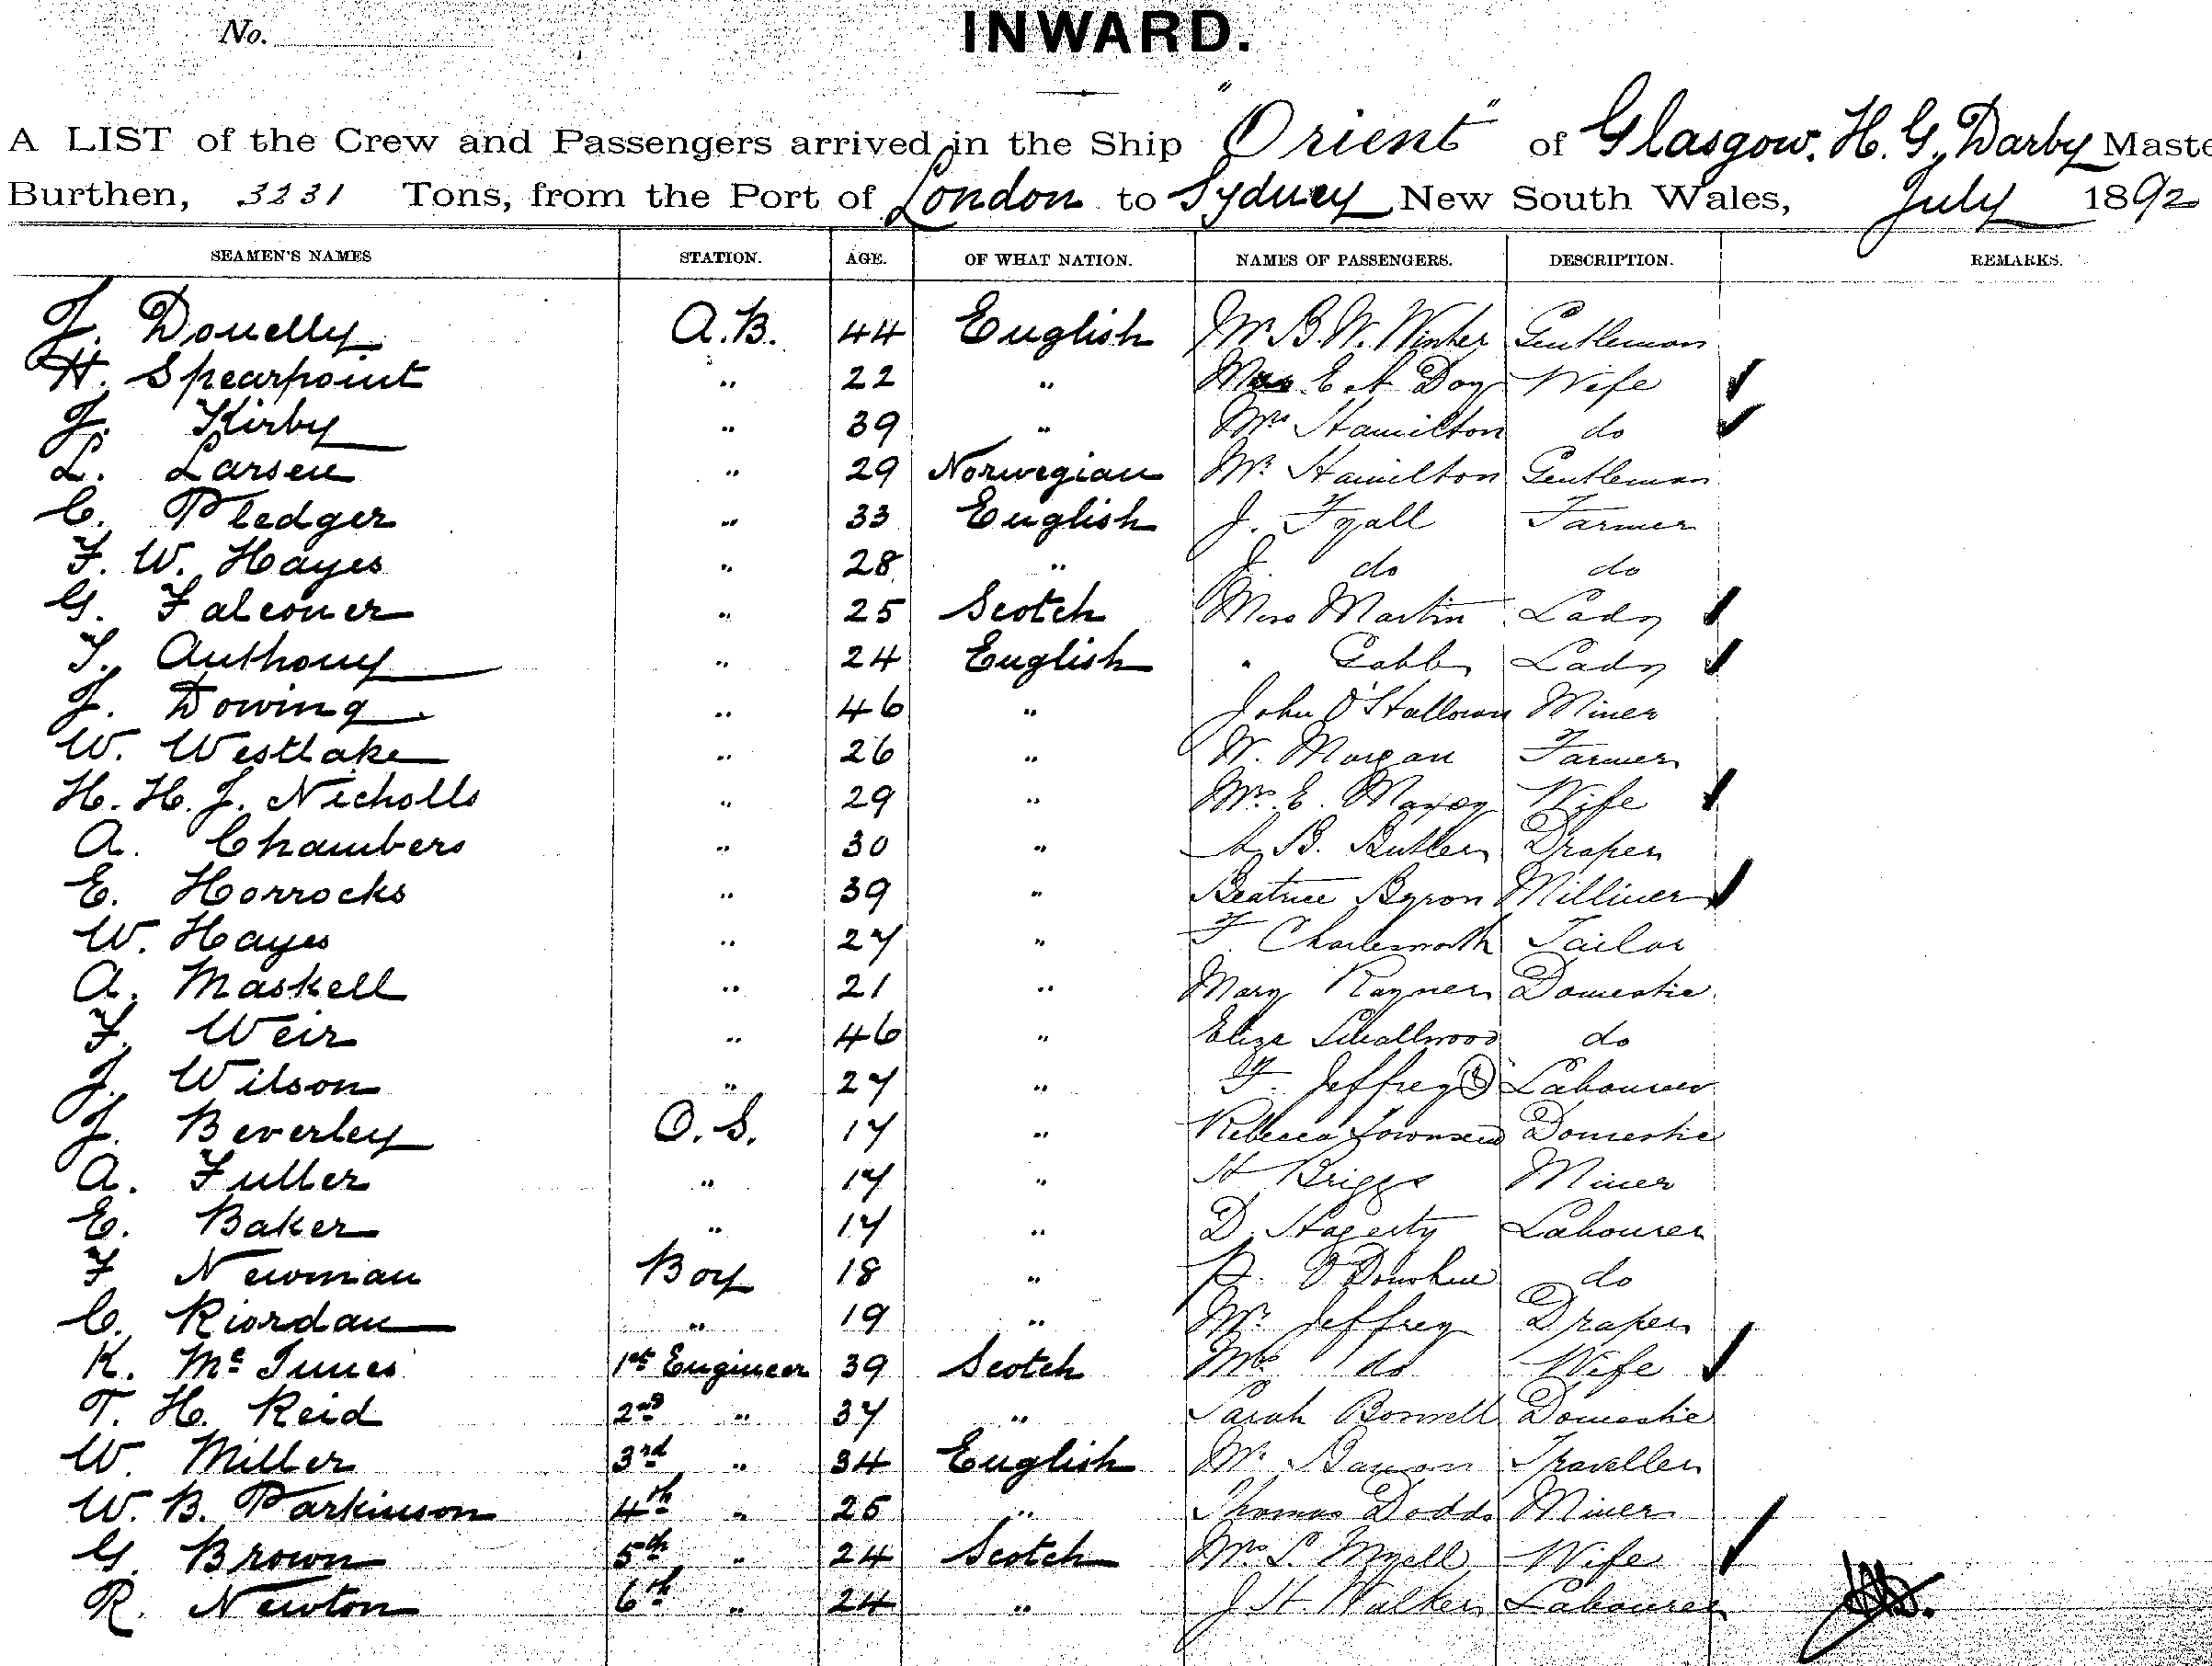 No.
INWARD.
A LIST of the Crew and Passengers arrived in the Ship "Orient" of Glasgow, H. G. Darby Maste
Burthen, 3231 Tons, from the Port of London to Sydney New South Wales, July 1892
SEAMEN'S NAMES STATION. AGE. OF WHAT NATION. NAMES OF PASSENGERS. DESCRIPTION. REMARKS.
J. Donelly A.B. 44 English Mr B. W. Winter Gentleman
H. Spearpoint " 22 " Mrs E A Day Wife
J. Kirby " 39 " Mrs Hamilton do
L. Larsen " 29 Norwegian Mr Hamilton Gentleman
C. Pledger " 33 English J. Fyall Farmer
F. W. Hayes " 28 " J. do do
G. Falconer " 25 Scotch Miss Martin Lady
T. Anthony " 24 English " Gabb Lady
J. Dowing " 46 " John O'Halloran Miner
W. Westlake " 26 " W. Morgan Farmer
H. H. J. Nicholls " 29 " Mrs E. Maxey Wife
A. Chambers " 30 " A. B. Butler Draper
E. Horrocks " 39 " Beatrice Byron Milliner
W. Hayes " 27 " F. Charlesworth Tailor
A. Maskell " 21 " Mary Rayner Domestic
F. Weir " 46 " Eliza Smallwood do
J. Wilson " 27 " F. Jeffrey Labourer
J. Beverley O.S. 17 " Rebecca Townsend Domestic
A. Fuller " 17 " H Briggs Miner
E. Baker " 17 " D. Hagerty Labourer
F Newman Boy 18 " P. O'Donohue do
C. Riordan " 19 " Mr Jeffrey Draper
K. McInnes 1st Engineer 39 Scotch Mrs do Wife
T. H. Reid 2nd " 37 " Sarah Bonnell Domestic
W. Miller 3rd " 34 English Mr Traveller
W. B. Parkinson 4th " 25 " Thomas Dodds Miner
G. Brown 5th " 24 Scotch Mrs S. Myell Wife
R. Newton 6th " 24 " J. H. Walker Labourer